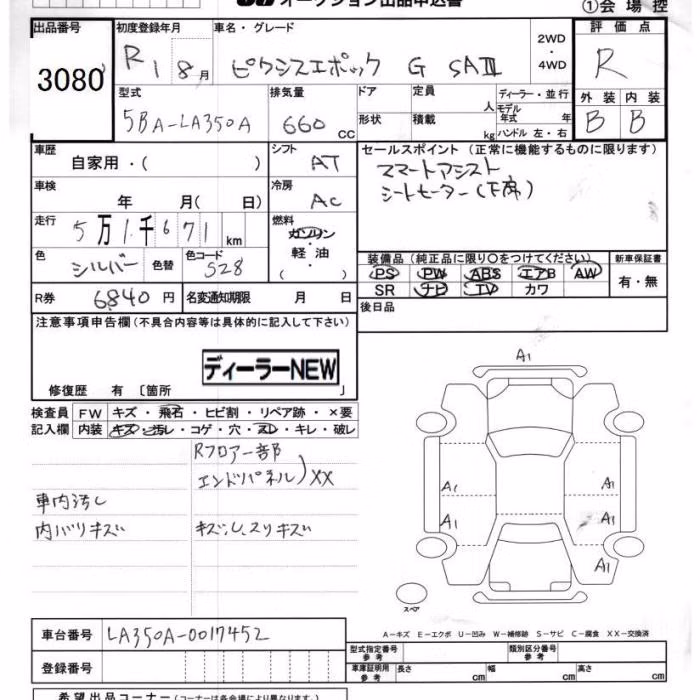 オークション出品申込書 ①会場控
出品番号 初度登録年月 車名・グレード 評価点
3080 R1 8月 ピクシスエポック G SAⅢ 2WD・4WD R
型式 排気量 ドア 定員 人 ディーラー・並行 外装 内装
5BA-LA350A 660 cc 形状 積載 kg モデル年式 年 ハンドル 左・右 B B
車歴 自家用・( ) シフト AT セールスポイント(正常に機能するものに限ります)
スマートアシスト
車検 年 月( 日) 冷房 AC シートヒーター(下席)
走行 5万1千671km 燃料 ガソリン・軽油・( )
色 シルバー 色替 色コード S28 装備品(純正品に限り○をつけてください) 新車保証書
PS PW ABS エアB AW 有・無
SR ナビ TV カワ
R券 6840円 名変通知期限 月 日 後日品
注意事項申告欄(不具合内容等は具体的に記入して下さい)
ディーラーNEW
修復歴 有〔箇所 〕
A1
検査員 FW キズ・飛石・ヒビ割・リペア跡・×要
記入欄 内装 キズ・汚レ・コゲ・穴・スレ・キレ・破レ
Rフロアー一部
エンドパネル)XX
A1 A1
車内汚し
内バリキズ キズ、し、スリキズ A1 A1
A1
スペア
車台番号 LA350A-0017452 A-キズ E-エクボ U-凹み W-補修跡 S-サビ C-腐食 XX-交換済
型式指定番号 参考 類別区分番号 参考
登録番号 車庫証明用 参考 長さ cm 幅 cm 高さ cm
希望出品コーナー(コーナーは各会場により異なります。)